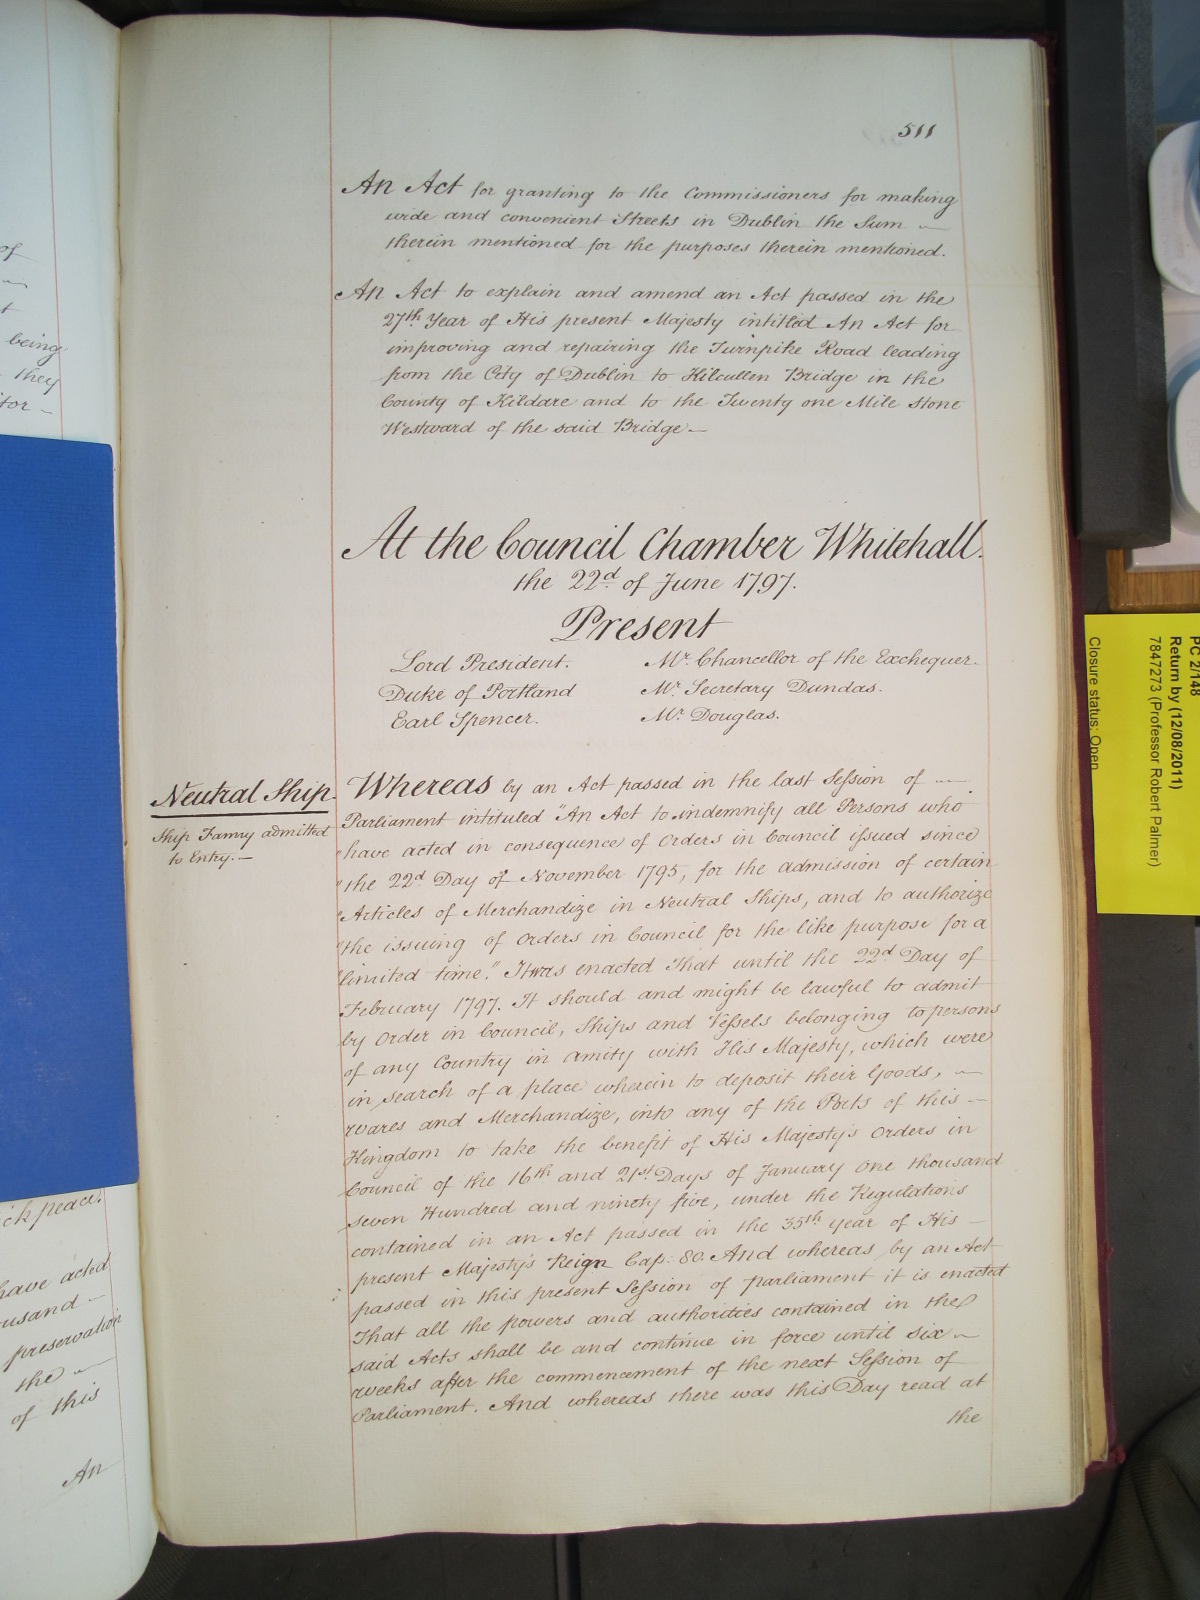 of
t
being
they
tor -
ck peace.
have acted
usand -
preservation
the
of this
An
511
An Act for granting to the Commissioners for making
wide and convenient Streets in Dublin the Sum
therein mentioned for the purposes therein mentioned.
An Act to explain and amend an Act passed in the
27th Year of His present Majesty intitled An Act for
improving and repairing the Turnpike Road leading
from the City of Dublin to Kilcullen Bridge in the
County of Kildare and to the Twenty one Mile Stone
Westward of the said Bridge.—
At the Council Chamber Whitehall.
the 22d of June 1797.
Present
Lord President. Mr. Chancellor of the Exchequer.
Duke of Portland Mr. Secretary Dundas.
Earl Spencer. Mr. Douglas.
Neutral Ship.
Ship admitted
to Entry.—
Whereas by an Act passed in the last Session of —
Parliament intituled "An Act to indemnify all Persons who
"have acted in consequence of Orders in Council issued since
"the 22d Day of November 1795, for the admission of certain
"Articles of Merchandize in Neutral Ships, and to authorize
"the issuing of Orders in Council for the like purpose for a
"limited time." It was enacted That until the 22d Day of
February 1797. It should and might be lawful to admit
by Order in Council, Ships and Vessels belonging to persons
of any Country in amity with His Majesty, which were
in search of a place wherein to deposit their Goods, —
wares and Merchandize, into any of the Ports of this —
Kingdom to take the benefit of His Majesty's Orders in
Council of the 16th and 21st Days of January One thousand
seven Hundred and ninety five, under the Regulations
contained in an Act passed in the 35th year of His —
present Majesty's Reign Cap: 80. And whereas by an Act
passed in this present Session of parliament it is enacted
That all the powers and authorities contained in the
said Acts shall be and continue in force until six —
weeks after the commencement of the next Session of
Parliament. And whereas there was this Day read at
the
PC 2/148
Return by (12/08/2011)
7847273 (Professor Robert Palmer)
Closure status: Open